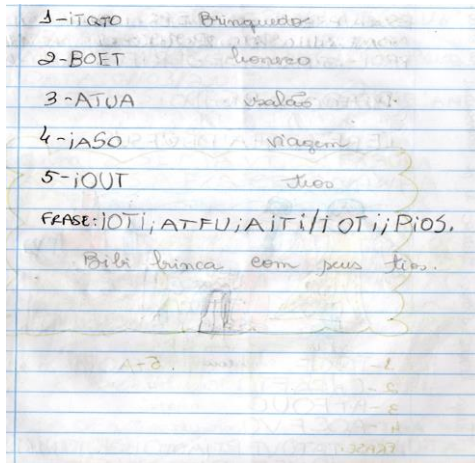 1-iTQTO Brinquedos
2-BOET boneco
3-ATUA
4-iASO viagem
5-iOUT tios
FRASE: iOTi; ATFU; AiTi/i OTi;; PiOS.
Bibi brinca com seus tios.